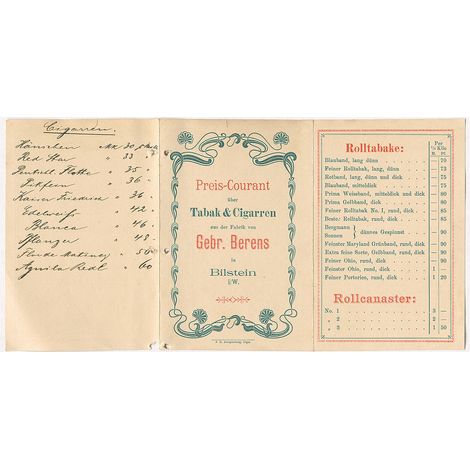 Cigarren.
Hännschen Mk 30,
Red Star " 33
Deutsch. Flotte " 35
Pickfein " 36
Kaiser Friedrich " 36
Edelweiß " 42
Blanca " 46
Pflanzer " 48
" 50
Aguila Real " 60
Preis-Courant
über
Tabak & Cigarren
aus der Fabrik von
Gebr. Berens
in
Bilstein
i/W.
Rolltabake:
Per
½ Kilo
M. Pf.
Blauband, lang dünn — 70
Feiner Rolltabak, lang dünn — 73
Rotband, lang, dünn und dick — 75
Blauband, mitteldick — 75
Prima Weissband, mitteldick und dick — 80
Prima Gelbband, dick — 80
Feiner Rolltabak No. 1, rund, dick — 85
Bester Rolltabak, rund, dick — 85
Bergmann
Sonnen } dünnes Gespinnst — 90
Feinster Maryland Grünband, rund, dick — 90
Extra feine Sorte, Gelbband, rund, dick — 90
Feiner Ohio, rund, dick — 90
Feinster Ohio, rund, dick 1 —
Feiner Portorico, rund, dick 1 20
Rollcanaster:
No. 1 3 —
" 2 2 —
" 3 1 50